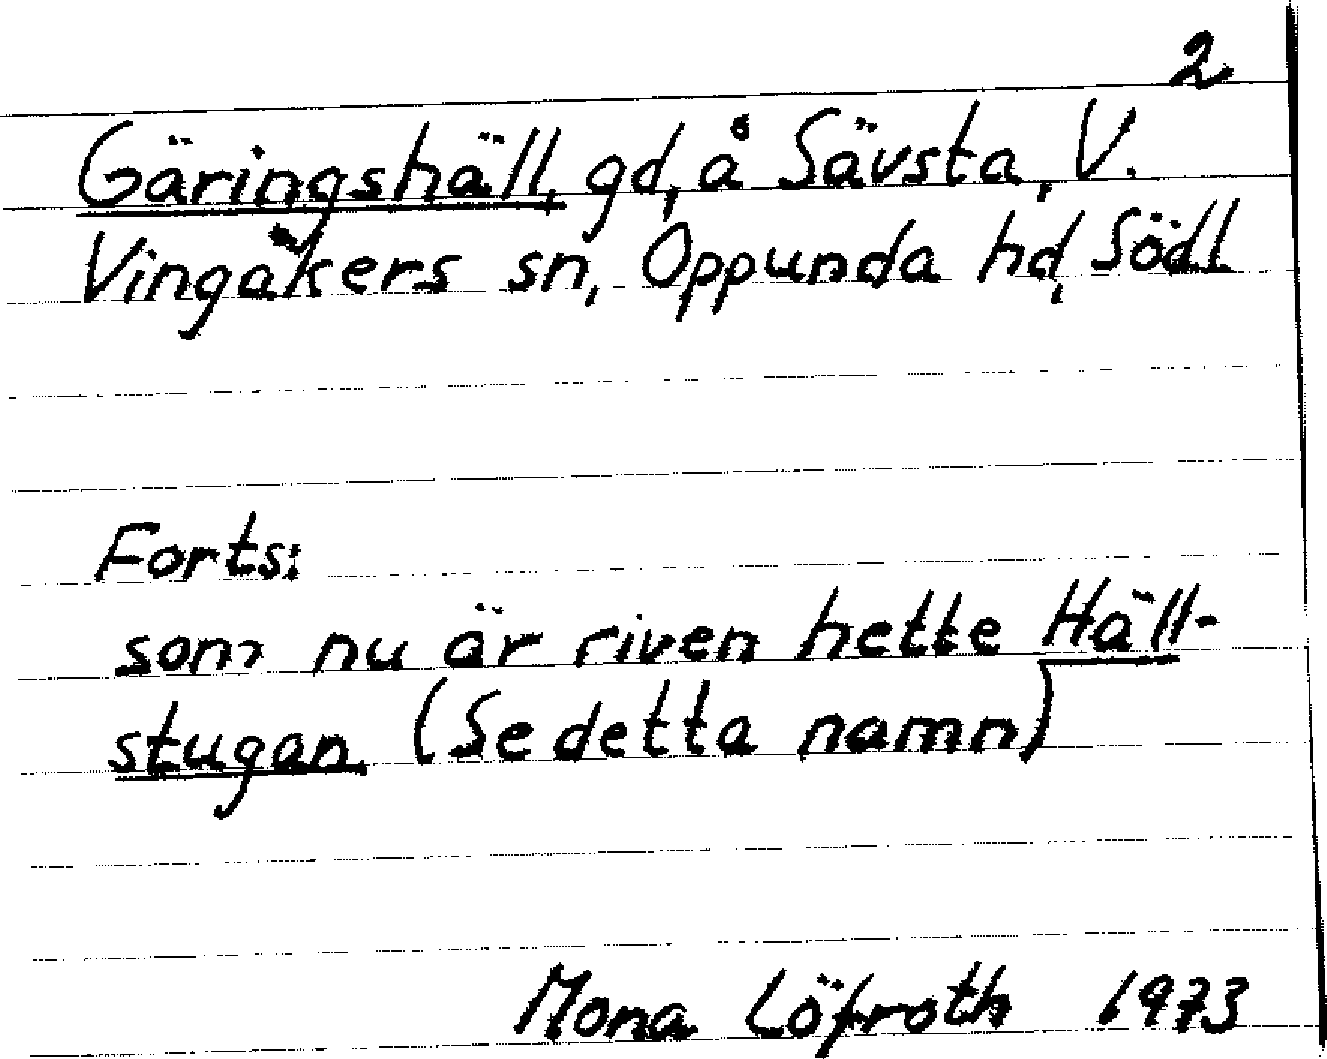 2
Gäringshäll, gd, å Sävsta, V.
Vingåkers sn, Oppunda hd, Södl
Forts:
som nu är riven hette Häll-
stugan. (Se detta namn)
Mona Löfroth 1973